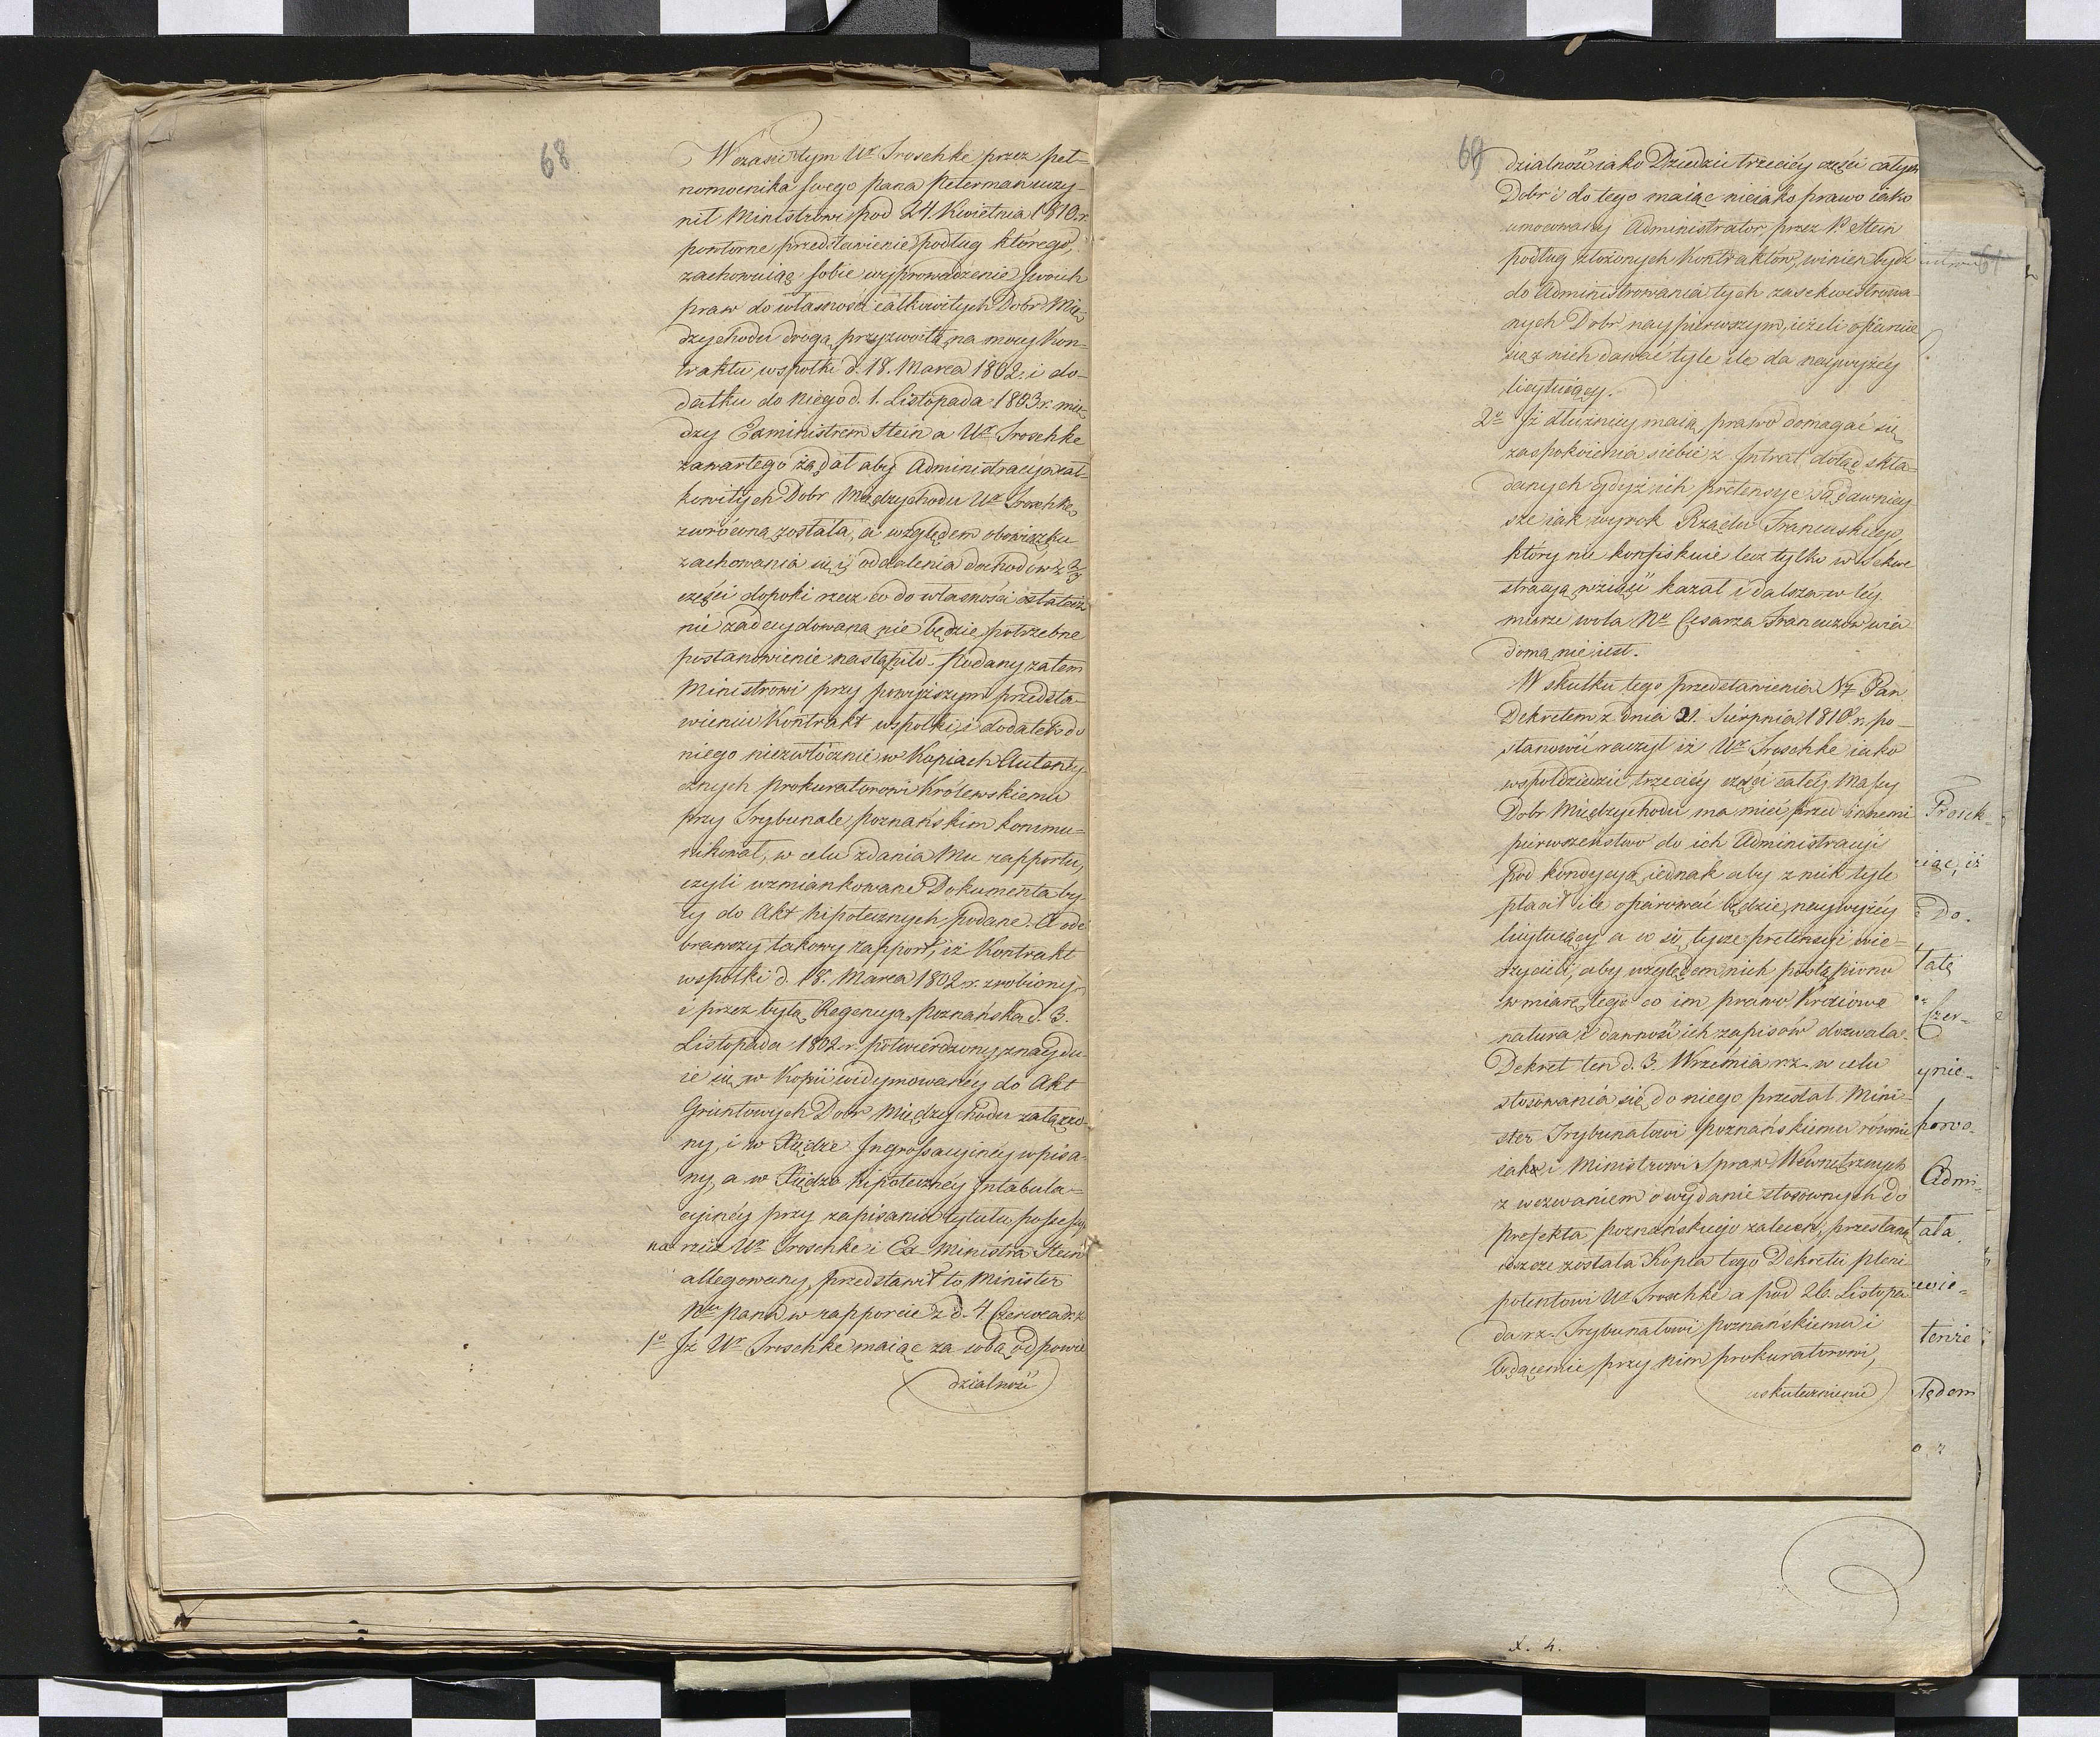 68
W czasie tym Ur Troschke przez peł-
nomocnika swego Pana Peterman uczy-
nił Ministrowi pod 24. Kwietnia 1810. r.
powtorne przedstawienie, podług którego,
zachowuiąc sobie wyprowadzenie swoich
praw do własności całkowitych Dobr Mię-
dzychodu drogą przyzwoitą, na mocy Kon-
traktu wspołki d. 18. Marca 1802. i do-
datku do niego d. 1. Listopada 1803 r. mię-
dzy Exministrem Stein a Ur Troschke
zawartego żądał aby Administracya cał-
kowitych Dobr Międzychodu Ur Troschke
zwrócona została, a względem obowiązku
zachowania się i oddalenia dochodów z 2/3
części dopoki rzecz co do własności ostatecz
nie zadecydowana nie będzie, potrzebne
postanowienie nastąpiło. Podany zatem
Ministrowi przy powyższym przedsta-
wieniu Kontrakt wspołki, i dodatek do
niego niezwłócznie w Kopiach Autenty-
cznych Prokuratorowi Królewskiemu
przy Trybunale Poznańskim kommu-
nikował, w celu zdania Mu rapportu,
czyli wzmiankowane Dokumenta by-
ły do Akt hipotecznych podane. A ode
brawszy takowy rapport, iż Kontrakt
wspołki d. 18. Marca 1802 r. zrobiony,
i przez byłą Regencyą Poznańską d. 3.
Listopada 1802 r. potwierdzony, znaydu-
ie się w Kopii widymowanéy do Akt
Gruntowych Dobr Międzychodu załączo-
ny, i w Xiędze Ingrossacyinéy wpisa-
ny, a w Xiędze Hipotecznéy Intabula-
cyinéy przy zapisaniu tytułu possessyi
na rzecz Ur Troschke i Ex-Ministra Stein
allegowany, przedstawił to Minister
Nmu Panu w rapporcie z d. 4. Czerwca r. z.
1o Iż Ur Troschke maiąc za sobą odpowie
dzialność
69
dzialność iako Dziedzic trzeciéy części całych
Dobr i do tego maiąc nieiako prawo iako
umocowany Administrator, przez P. Stein
podług złożonych Kontraktów, winien bydź
do Administrowania tych zasekwestrowa-
nych Dobr naypierwszym, ieżeli ofiaruie
się z nich dawać tyle ile da naywyżéy
licytuiący.
2o Iż dłużnicy maią prawo domagać się
zaspokoienia siebie z Intrat dotąd skła-
danych gdyż ich pretensye są dawniey
sze iak wyrok Rządu Francuskiego,
który nie konfiskuie lecz tylko w Sekwe
stracyą wziąść kazał i dalsza w téy
mierze wola Nr Cesarza Francuzów wia-
domą nie iest.
W skutku tego przedstawienia Ny Pan
Dekretem z dnia 21. Sierpnia 1810 r. po-
stanowić raczył iż Ur Troschke iako
wspołdziedzic trzeciéy części całéy Massy
Dobr Międzychodu ma mieć przed innemi
pierwszeństwo do ich Administracyi
pod kondycyą iednak aby z nich tyle
płacił ile ofiarować będzie naywyżéy
licytuiący a co się tycze pretensyi wie-
rzycieli, aby względem nich postąpiono
w miarę tego co im prawo Kraiowe
natura i dawność ich zapisów dozwala.
Dekret ten d. 3. Września r. z. w celu
stosowania się do niego przesłał Mini-
ster Trybunałowi Poznańskiemu równie
iak i Ministrowi Spraw Wewnętrznych
z wezwaniem o wydanie stosownych do
Prefekta Poznańskiego zaleceń, przesłaną
ieszcze została Kopia tego Dekretu Pleni-
potentowi Ur Troschke a pod 26. Listopa-
da r. z. Trybunałowi Poznańskiemu i
będącemu przy nim Prokuratorowi,
uskutecznienie
61
Prosch-
iąc, iż
Do-
łatę
Czer-
ynie-
porvo-
Admi-
ała
ewie-
tenże
lędem
o z
X. 4.